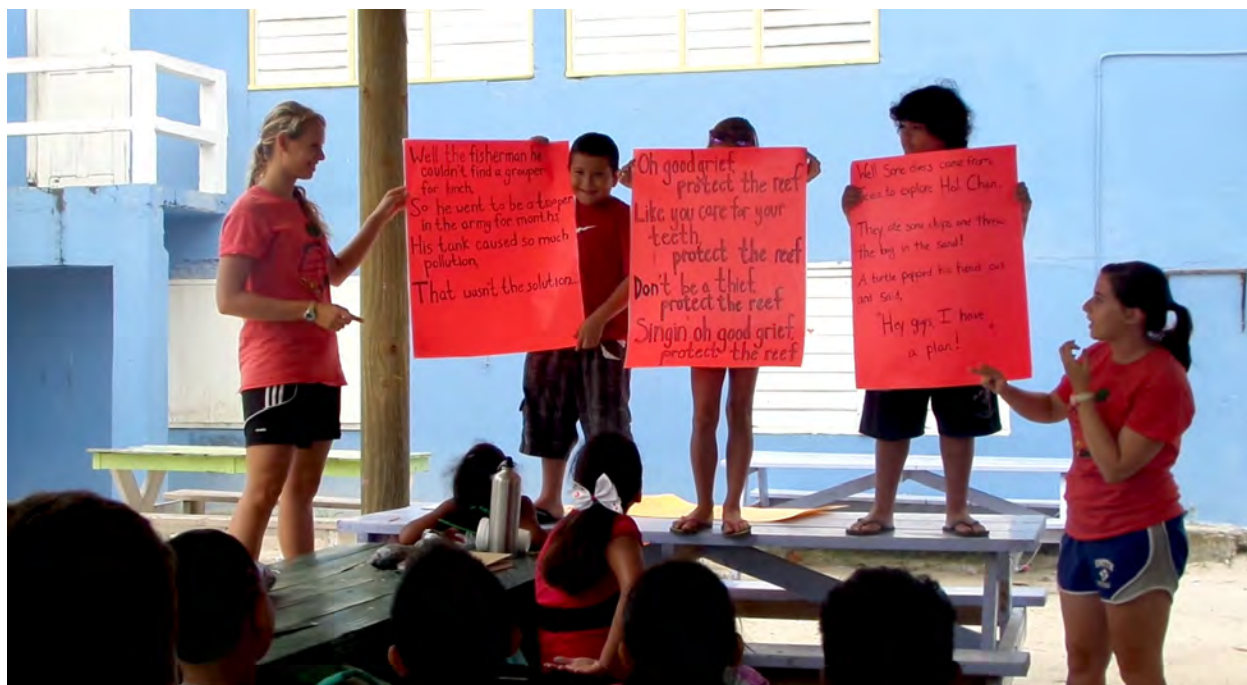 Well the fisherman he
couldn't find a grouper
for lunch,
So he went to be a trooper
in the army for months
His tank caused so much
pollution,
That wasn't the solution...
Oh good grief,
protect the reef
Like you care for your
teeth,
protect the reef
Don't be a thief,
protect the reef
Singin oh good grief,
protect the reef
Well Some divers came from
to explore Hol Chan.
They ate some chips and threw
the bag in the sand!
A turtle popped his head out
and said,
"Hey guys, I have
a plan!"